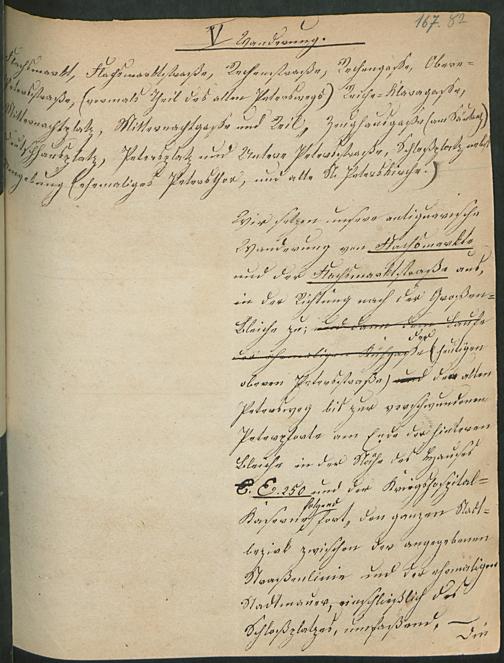 167. 82
V Wanderung.
Flachsmarkt, Flachsmarktstraße, Rechenstraße, Rechengasse, Obere-
Petersstraße, (vormals Theil des alten Peterswegs) Reiche-Klaragasse,
Mitternachtplatz, Mitternachtgasse und Reil, Zeughausgasse (am Sautag)
Deutschhausplatz, Petersplatz und Untere Petersstraße, Schloßplatz nebst
Umgebung (ehemaliges Petersthor, und alte St. Peterskirche.)
Wir setzen unsere antiquarische
Wanderung von Flachsmarkte
und der Flachsmarktstraße aus,
in der Richtung nach der Großen-
Bleiche zu; und dann dem Laufe
der
des ehemaligen (heutigen
oberen Petersstraße) und den alten
Petersweg bis zur verschwundenen
Peterspforte am Ende der hinteren
Bleiche in der Nähe des Hauses
E. 250 und der Kriegshospital-
folgend
Kaserne fort, den ganzen Stadt-
bezirk zwischen der angegebenen
Straßenlinie und der ehemaligen
Stadtmauer, einschließlich des
Schloßplatzes, umfassend. —
Die